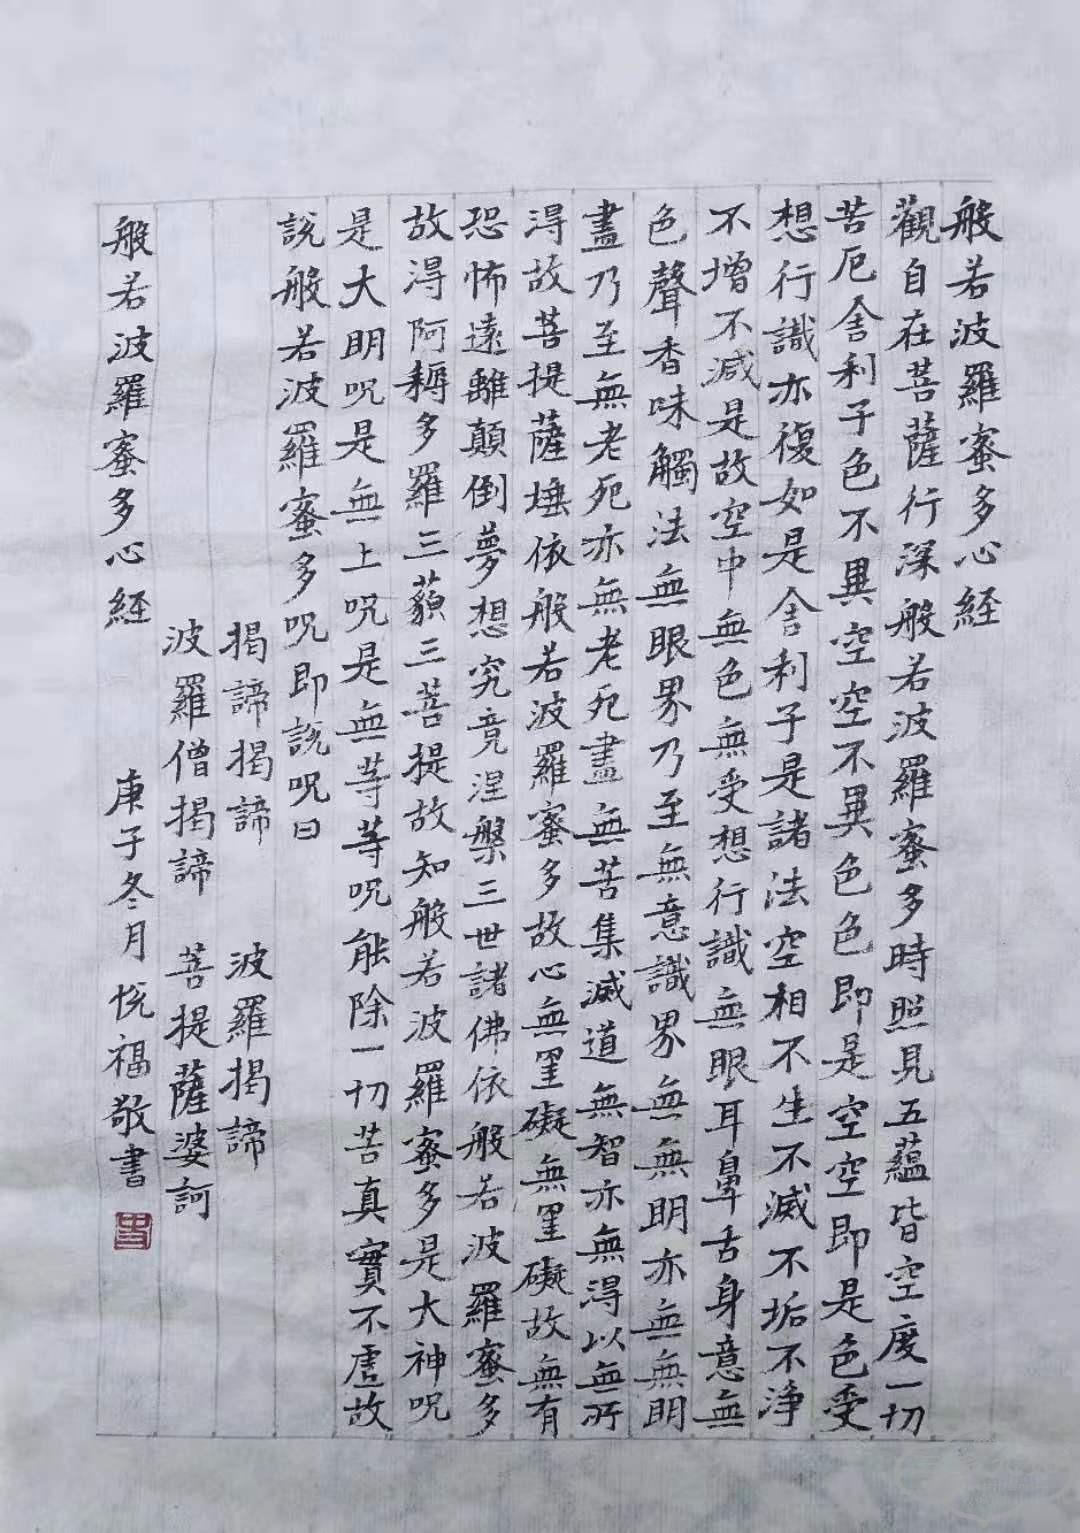 般若波羅蜜多心経
觀自在菩薩行深般若波羅蜜多時照見五蘊皆空度一切
苦厄舎利子色不異空空不異色色即是空空即是色受
想行識亦復如是舎利子是諸法空相不生不滅不垢不淨
不增不減是故空中無色無受想行識無眼耳鼻舌身意無
色聲香味觸法無眼界乃至無意識界無無明亦無無明
盡乃至無老死亦無老死盡無苦集滅道無智亦無得以無所
得故菩提薩埵依般若波羅蜜多故心無罣礙無罣礙故無有
恐怖遠離顛倒夢想究竟涅槃三世諸佛依般若波羅蜜多
故得阿耨多羅三藐三菩提故知般若波羅蜜多是大神呪
是大明呪是無上呪是無等等呪能除一切苦真實不虛故
説般若波羅蜜多呪即説呪曰
揭諦揭諦 波羅揭諦
波羅僧揭諦 菩提薩婆訶
般若波羅蜜多心経 庚子冬月悅福敬書